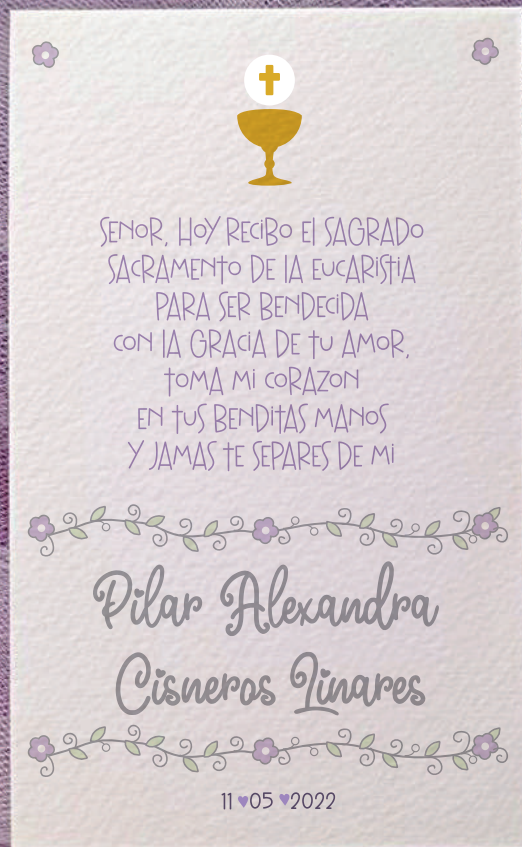 SENOR, HOY RECIBO El SAGRADO
SACRAMENTO DE lA EUCARISTIA
PARA SER BENDECIDA
CON lA GRACIA DE TU AMOR,
TOMA MI CORAZON
EN TUS BENDITAS MANOS
Y JAMAS TE SEPARES DE MI
Pilar Alexandra
Cisneros Linares
11 ♥05 ♥2022